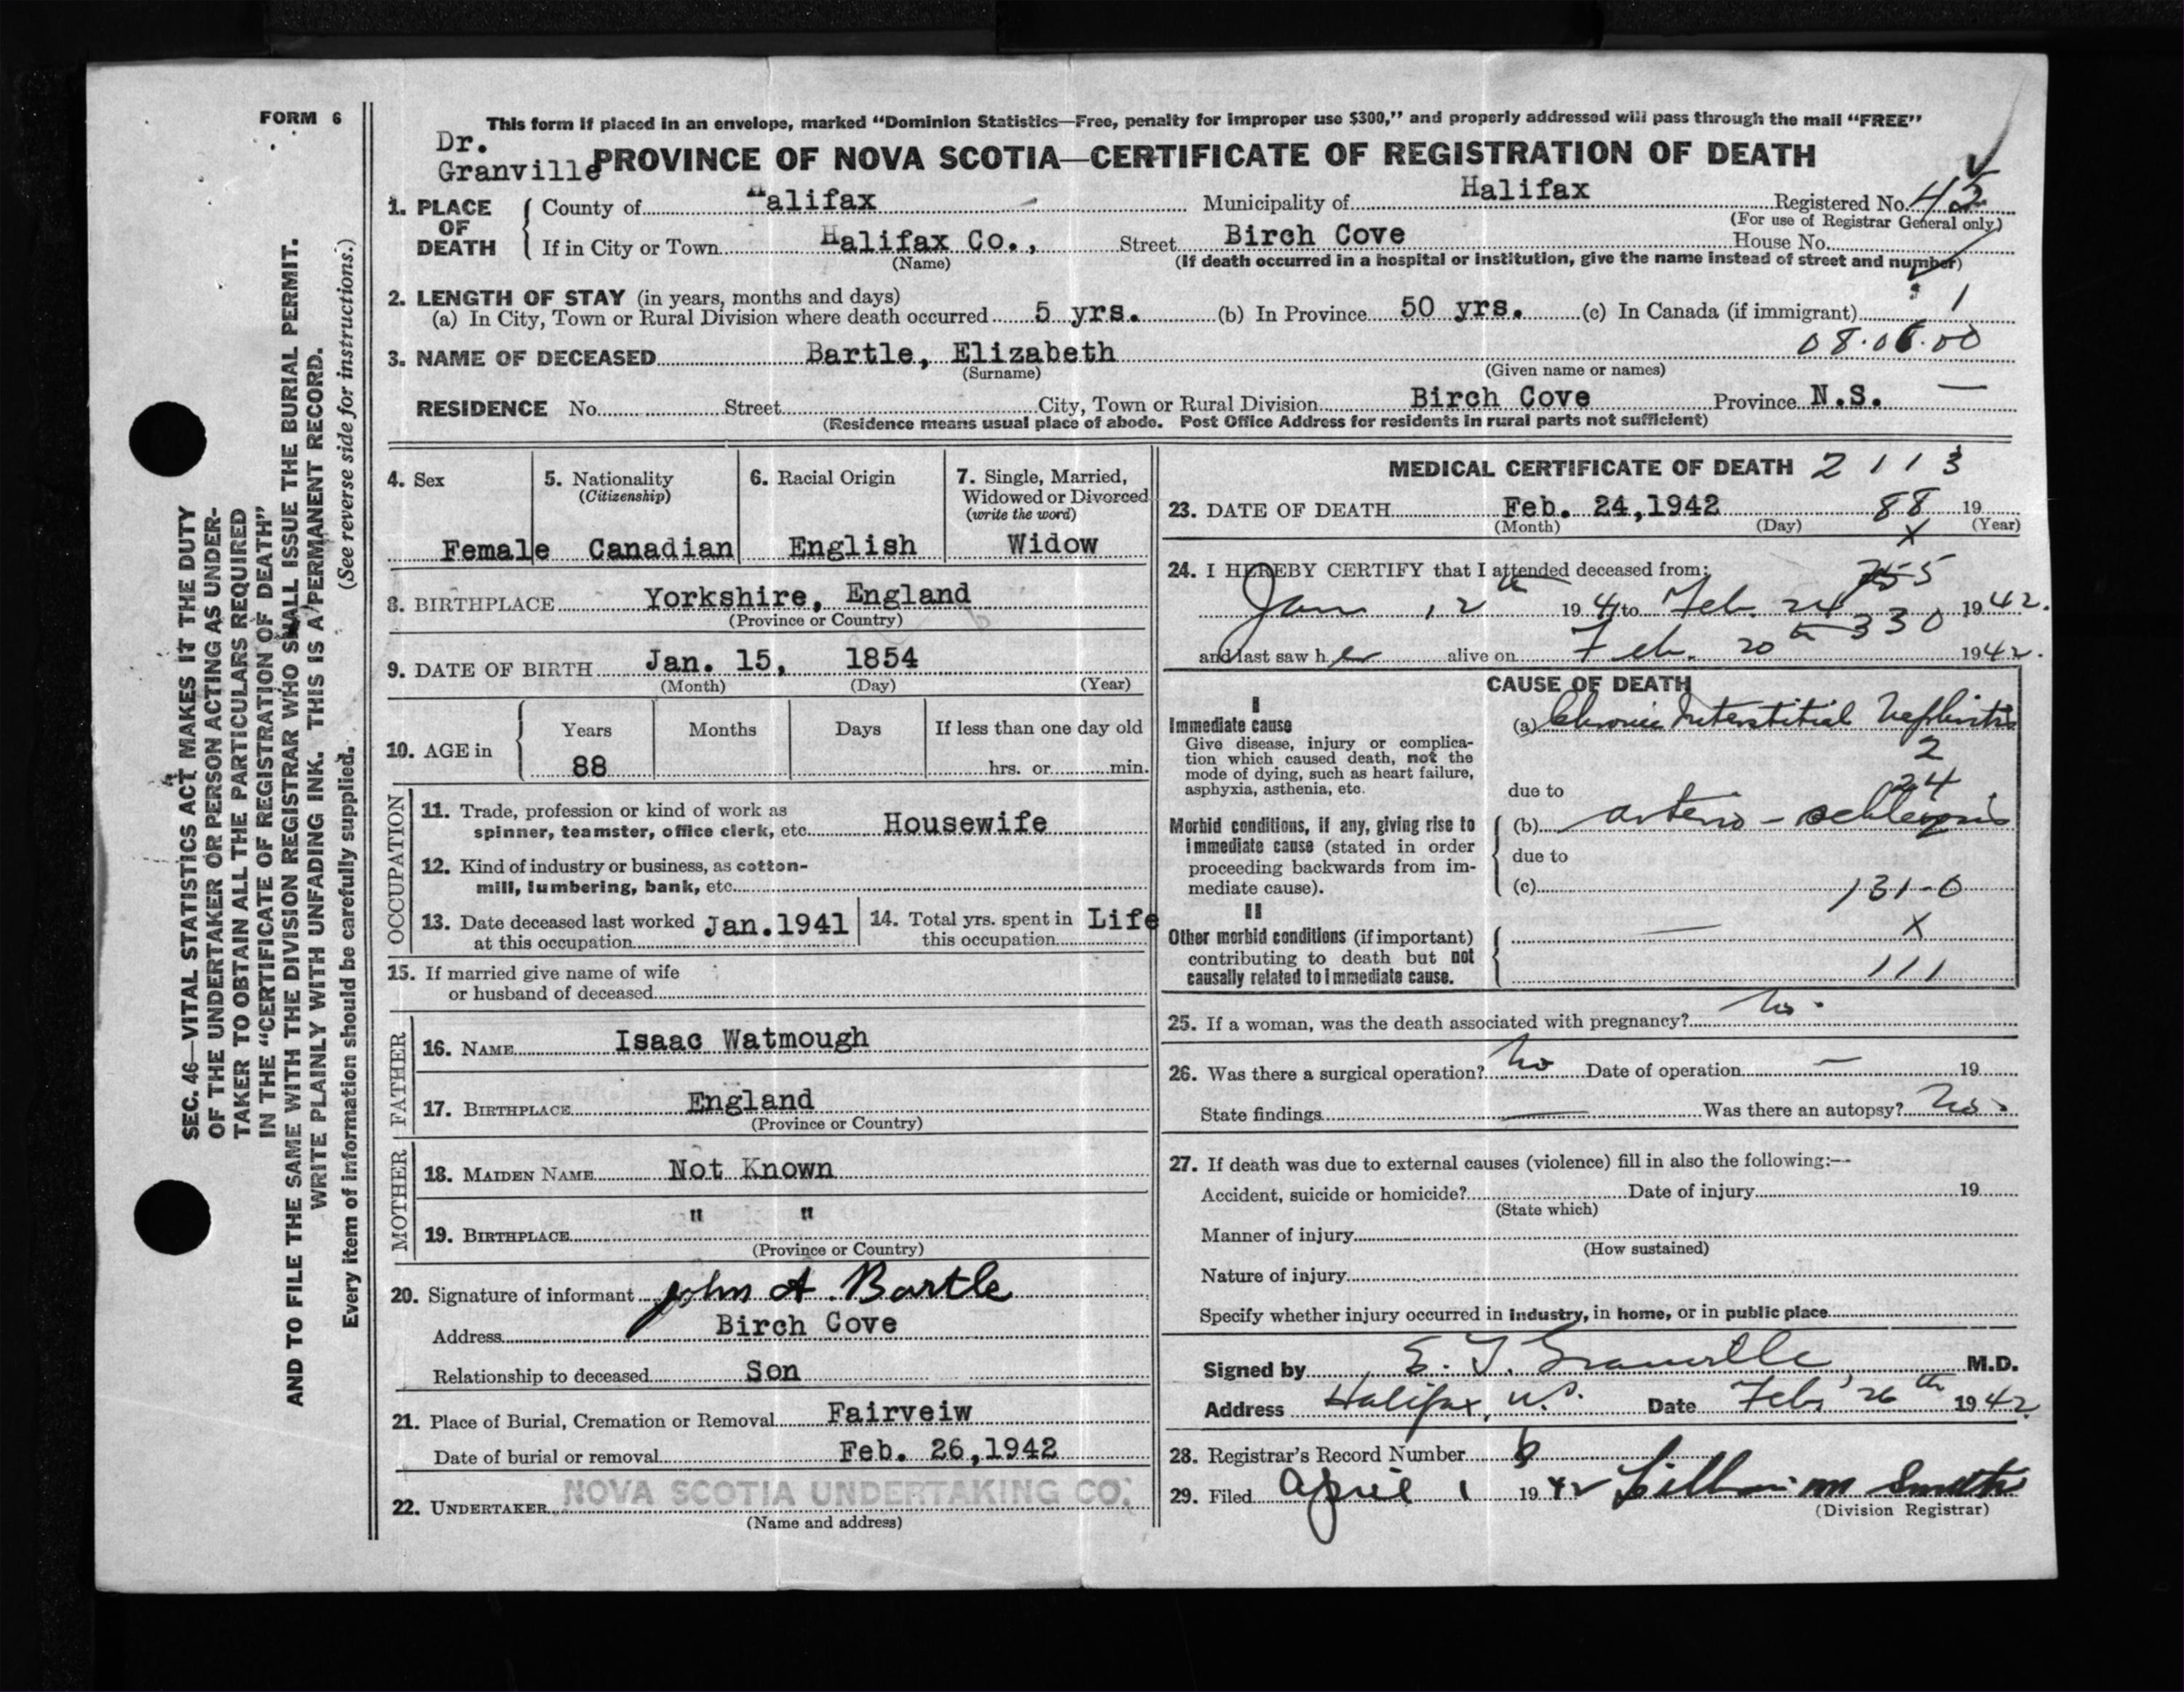 FORM 6
SEC. 46—VITAL STATISTICS ACT MAKES IT THE DUTY
OF THE UNDERTAKER OR PERSON ACTING AS UNDER-
TAKER TO OBTAIN ALL THE PARTICULARS REQUIRED
IN THE "CERTIFICATE OF REGISTRATION OF DEATH"
AND TO FILE THE SAME WITH THE DIVISION REGISTRAR WHO SHALL ISSUE THE BURIAL PERMIT.
WRITE PLAINLY WITH UNFADING INK. THIS IS A PERMANENT RECORD.
Every item of information should be carefully supplied. (See reverse side for instructions.)
This form if placed in an envelope, marked "Dominion Statistics—Free, penalty for improper use $300," and properly addressed will pass through the mail "FREE"
Dr.
Granville
PROVINCE OF NOVA SCOTIA—CERTIFICATE OF REGISTRATION OF DEATH
1. PLACE OF DEATH
County of Halifax Municipality of Halifax Registered No. 45
(For use of Registrar General only)
If in City or Town Halifax Co., Street Birch Cove House No.
(Name) (If death occurred in a hospital or institution, give the name instead of street and number)
2. LENGTH OF STAY (in years, months and days)
(a) In City, Town or Rural Division where death occurred 5 yrs. (b) In Province 50 yrs. (c) In Canada (if immigrant) 1
3. NAME OF DECEASED Bartle, Elizabeth 08.06.00
(Surname) (Given name or names)
RESIDENCE No. Street City, Town or Rural Division Birch Cove Province N.S. —
(Residence means usual place of abode. Post Office Address for residents in rural parts not sufficient)
4. Sex
Female
5. Nationality
(Citizenship)
Canadian
6. Racial Origin
English
7. Single, Married,
Widowed or Divorced
(write the word)
Widow
8. BIRTHPLACE Yorkshire, England
(Province or Country)
9. DATE OF BIRTH Jan. 15, 1854
(Month) (Day) (Year)
10. AGE in
Years Months Days If less than one day old
88 hrs. or min.
OCCUPATION
11. Trade, profession or kind of work as
spinner, teamster, office clerk, etc. Housewife
12. Kind of industry or business, as cotton-
mill, lumbering, bank, etc.
13. Date deceased last worked Jan.1941
at this occupation
14. Total yrs. spent in Life
this occupation
15. If married give name of wife
or husband of deceased
FATHER
16. NAME Isaac Watmough
17. BIRTHPLACE England
(Province or Country)
MOTHER
18. MAIDEN NAME Not Known
19. BIRTHPLACE " "
(Province or Country)
20. Signature of informant John A. Bartle
Address Birch Cove
Relationship to deceased Son
21. Place of Burial, Cremation or Removal Fairveiw
Date of burial or removal Feb. 26,1942
22. UNDERTAKER NOVA SCOTIA UNDERTAKING CO.
(Name and address)
MEDICAL CERTIFICATE OF DEATH 2113
23. DATE OF DEATH Feb. 24,1942 88 19
(Month) (Day) (Year)
X
24. I HEREBY CERTIFY that I attended deceased from:
Jan 12th 1941 to Feb. 24 1942.
330
and last saw her alive on Feb. 20th 1942.
CAUSE OF DEATH
I
Immediate cause
Give disease, injury or complica-
tion which caused death, not the
mode of dying, such as heart failure,
asphyxia, asthenia, etc.
(a) Chronic Interstitial Nephritis
2
24
due to
Morbid conditions, if any, giving rise to
immediate cause (stated in order
proceeding backwards from im-
mediate cause).
(b) arterio-
due to
(c) 131-0
II
Other morbid conditions (if important)
contributing to death but not
causally related to immediate cause.
— X
111
25. If a woman, was the death associated with pregnancy? No.
26. Was there a surgical operation? No Date of operation — 19
State findings — Was there an autopsy? No.
27. If death was due to external causes (violence) fill in also the following:--
Accident, suicide or homicide? Date of injury 19
(State which)
Manner of injury
(How sustained)
Nature of injury
Specify whether injury occurred in industry, in home, or in public place
Signed by E. T. Granville M.D.
Address Halifax, N.S. Date Feb. 26th 1942
28. Registrar's Record Number 6
29. Filed April 1 1942 Lillian M Smith
(Division Registrar)